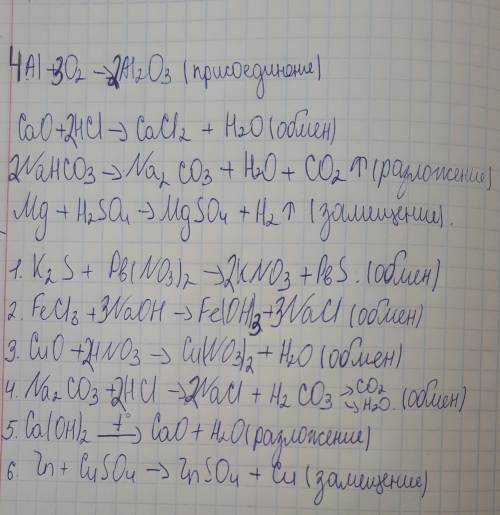 4Al + 3O2 → 2Al2O3 (присоединение)
CaO + 2HCl → CaCl2 + H2O (обмен)
2NaHCO3 → Na2CO3 + H2O + CO2 ↑ (разложение)
Mg + H2SO4 → MgSO4 + H2 ↑ (замещение).
1. K2S + Pb(NO3)2 → 2KNO3 + PbS. (обмен)
2. FeCl3 + 3NaOH → Fe(OH)3 + 3NaCl (обмен)
3. CuO + 2HNO3 → Cu(NO3)2 + H2O (обмен)
4. Na2CO3 + 2HCl → 2NaCl + H2CO3 → CO2 → H2O (обмен)
5. Ca(OH)2 t° → CaO + H2O (разложение)
6. Zn + CuSO4 → ZnSO4 + Cu (замещение)